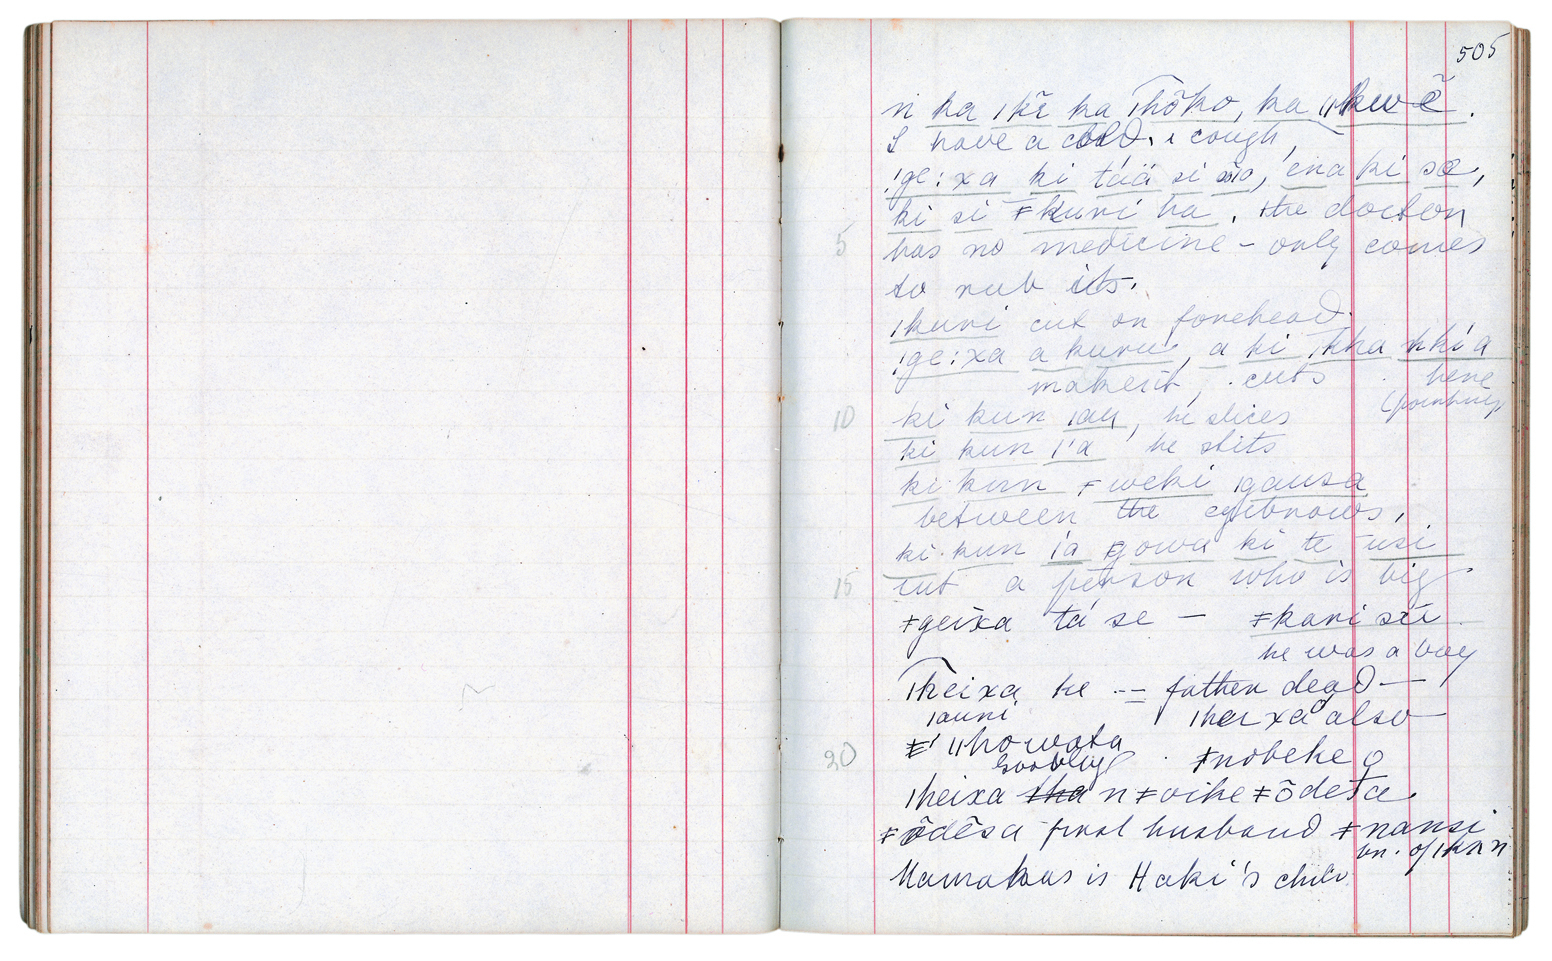 505
n ka ǀkĩ ka ǀhõko, ka ǁkwẽ.
I have a cold, & cough,
ǃge:xa ki tää si so, ena ki sœ,
ki si ǂkuri ha. the doctor
5 has no medicine - only comes
to rub its.
ǀkuri cut on forehead.
ǃge:xa a kuru, a ki ǀkha kki a
makes it, cuts here
10 ki kun ǀau, he slices
ki kun ǀ'a he slits
ki kun ǂweki ǀgausa
between the eyebrows,
ki kun ǀa gowa ki te usi
15 cut a person who is big
ǂgeixa tá se — ǂkari si
he was a boy
ǀheixa ke -- father dead —
ǀauni ǀheixa also —
ǂ' ǁhowata
20 ǂnobeke
ǀheixa n ǂoike ǂõdesa
ǂõdēsa first husband ǂnansi
br. of
Mamakas is Haki's child